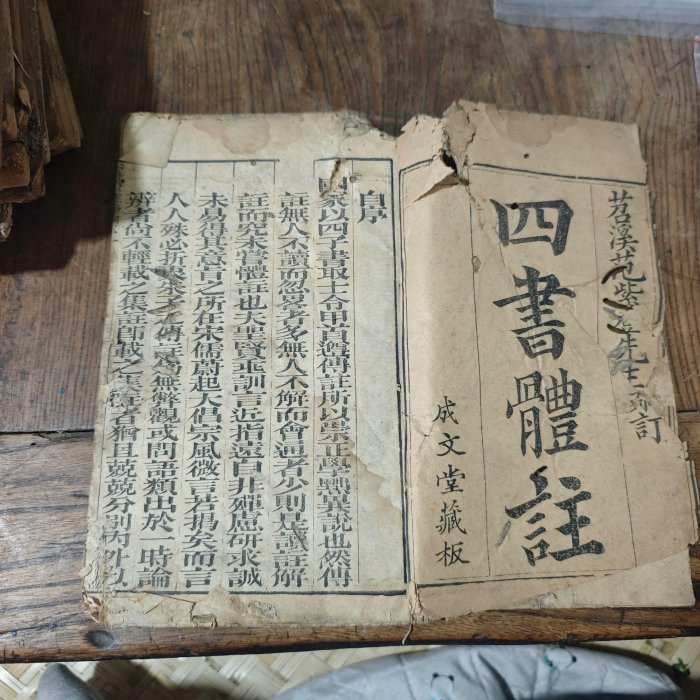 苕溪范紫登先生叅訂
四書體註
成文堂藏板
自序
國家以四子書取士令甲首遵傳註所以崇正學黜異說也然傳
註無人不讀而忽畧者多無人不解而會通者少則是讀註解
註而究未嘗體註也夫聖賢垂訓言近指遠自非殫慮研求誠
未易得其意旨之所在宋儒蔚起大倡宗風微言若揭矣而言
人人殊必折衷朱子傳註爲無弊觀或問語類出於一時論
辨者尚不輕載之集註卽載之集註者猶且兢兢分別內外以